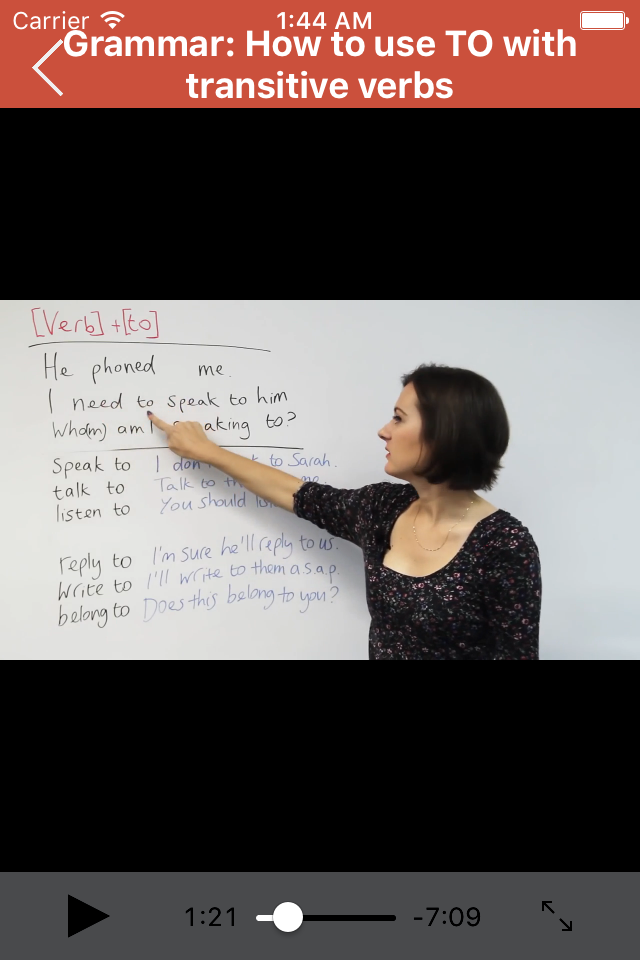 Carrier 1:44 AM
Grammar: How to use TO with
transitive verbs
[Verb] +[to]
He phoned me.
I need to speak to him
Who(m) am I speaking to?
Speak to I don't to Sarah.
talk to Talk to me
listen to You should
reply to I'm sure he'll reply to us.
Write to I'll write to them a.s.a.p.
belong to Does this belong to you?
1:21 -7:09